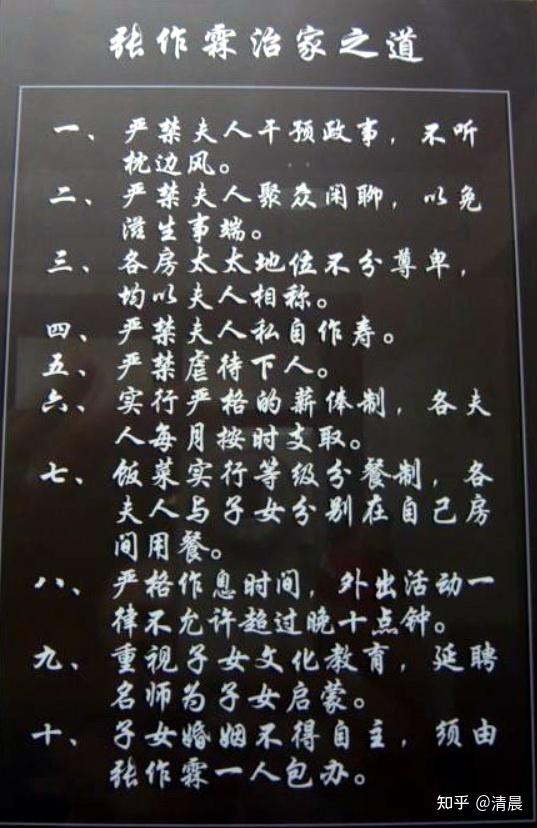 张作霖治家之道
一、严禁夫人干预政事，不听
枕边风。
二、严禁夫人聚众闲聊，以免
滋生事端。
三、各房太太地位不分尊卑，
均以夫人相称。
四、严禁夫人私自作寿。
五、严禁虐待下人。
六、实行严格的薪俸制，各夫
人每月按时支取。
七、饭菜实行等级分餐制，各
夫人与子女分别在自己房
间用餐。
八、严格作息时间，外出活动一
律不允许超过晚十点钟。
九、重视子女文化教育，延聘
名师为子女启蒙。
十、子女婚姻不得自主，须由
张作霖一人包办。
知乎 @清晨